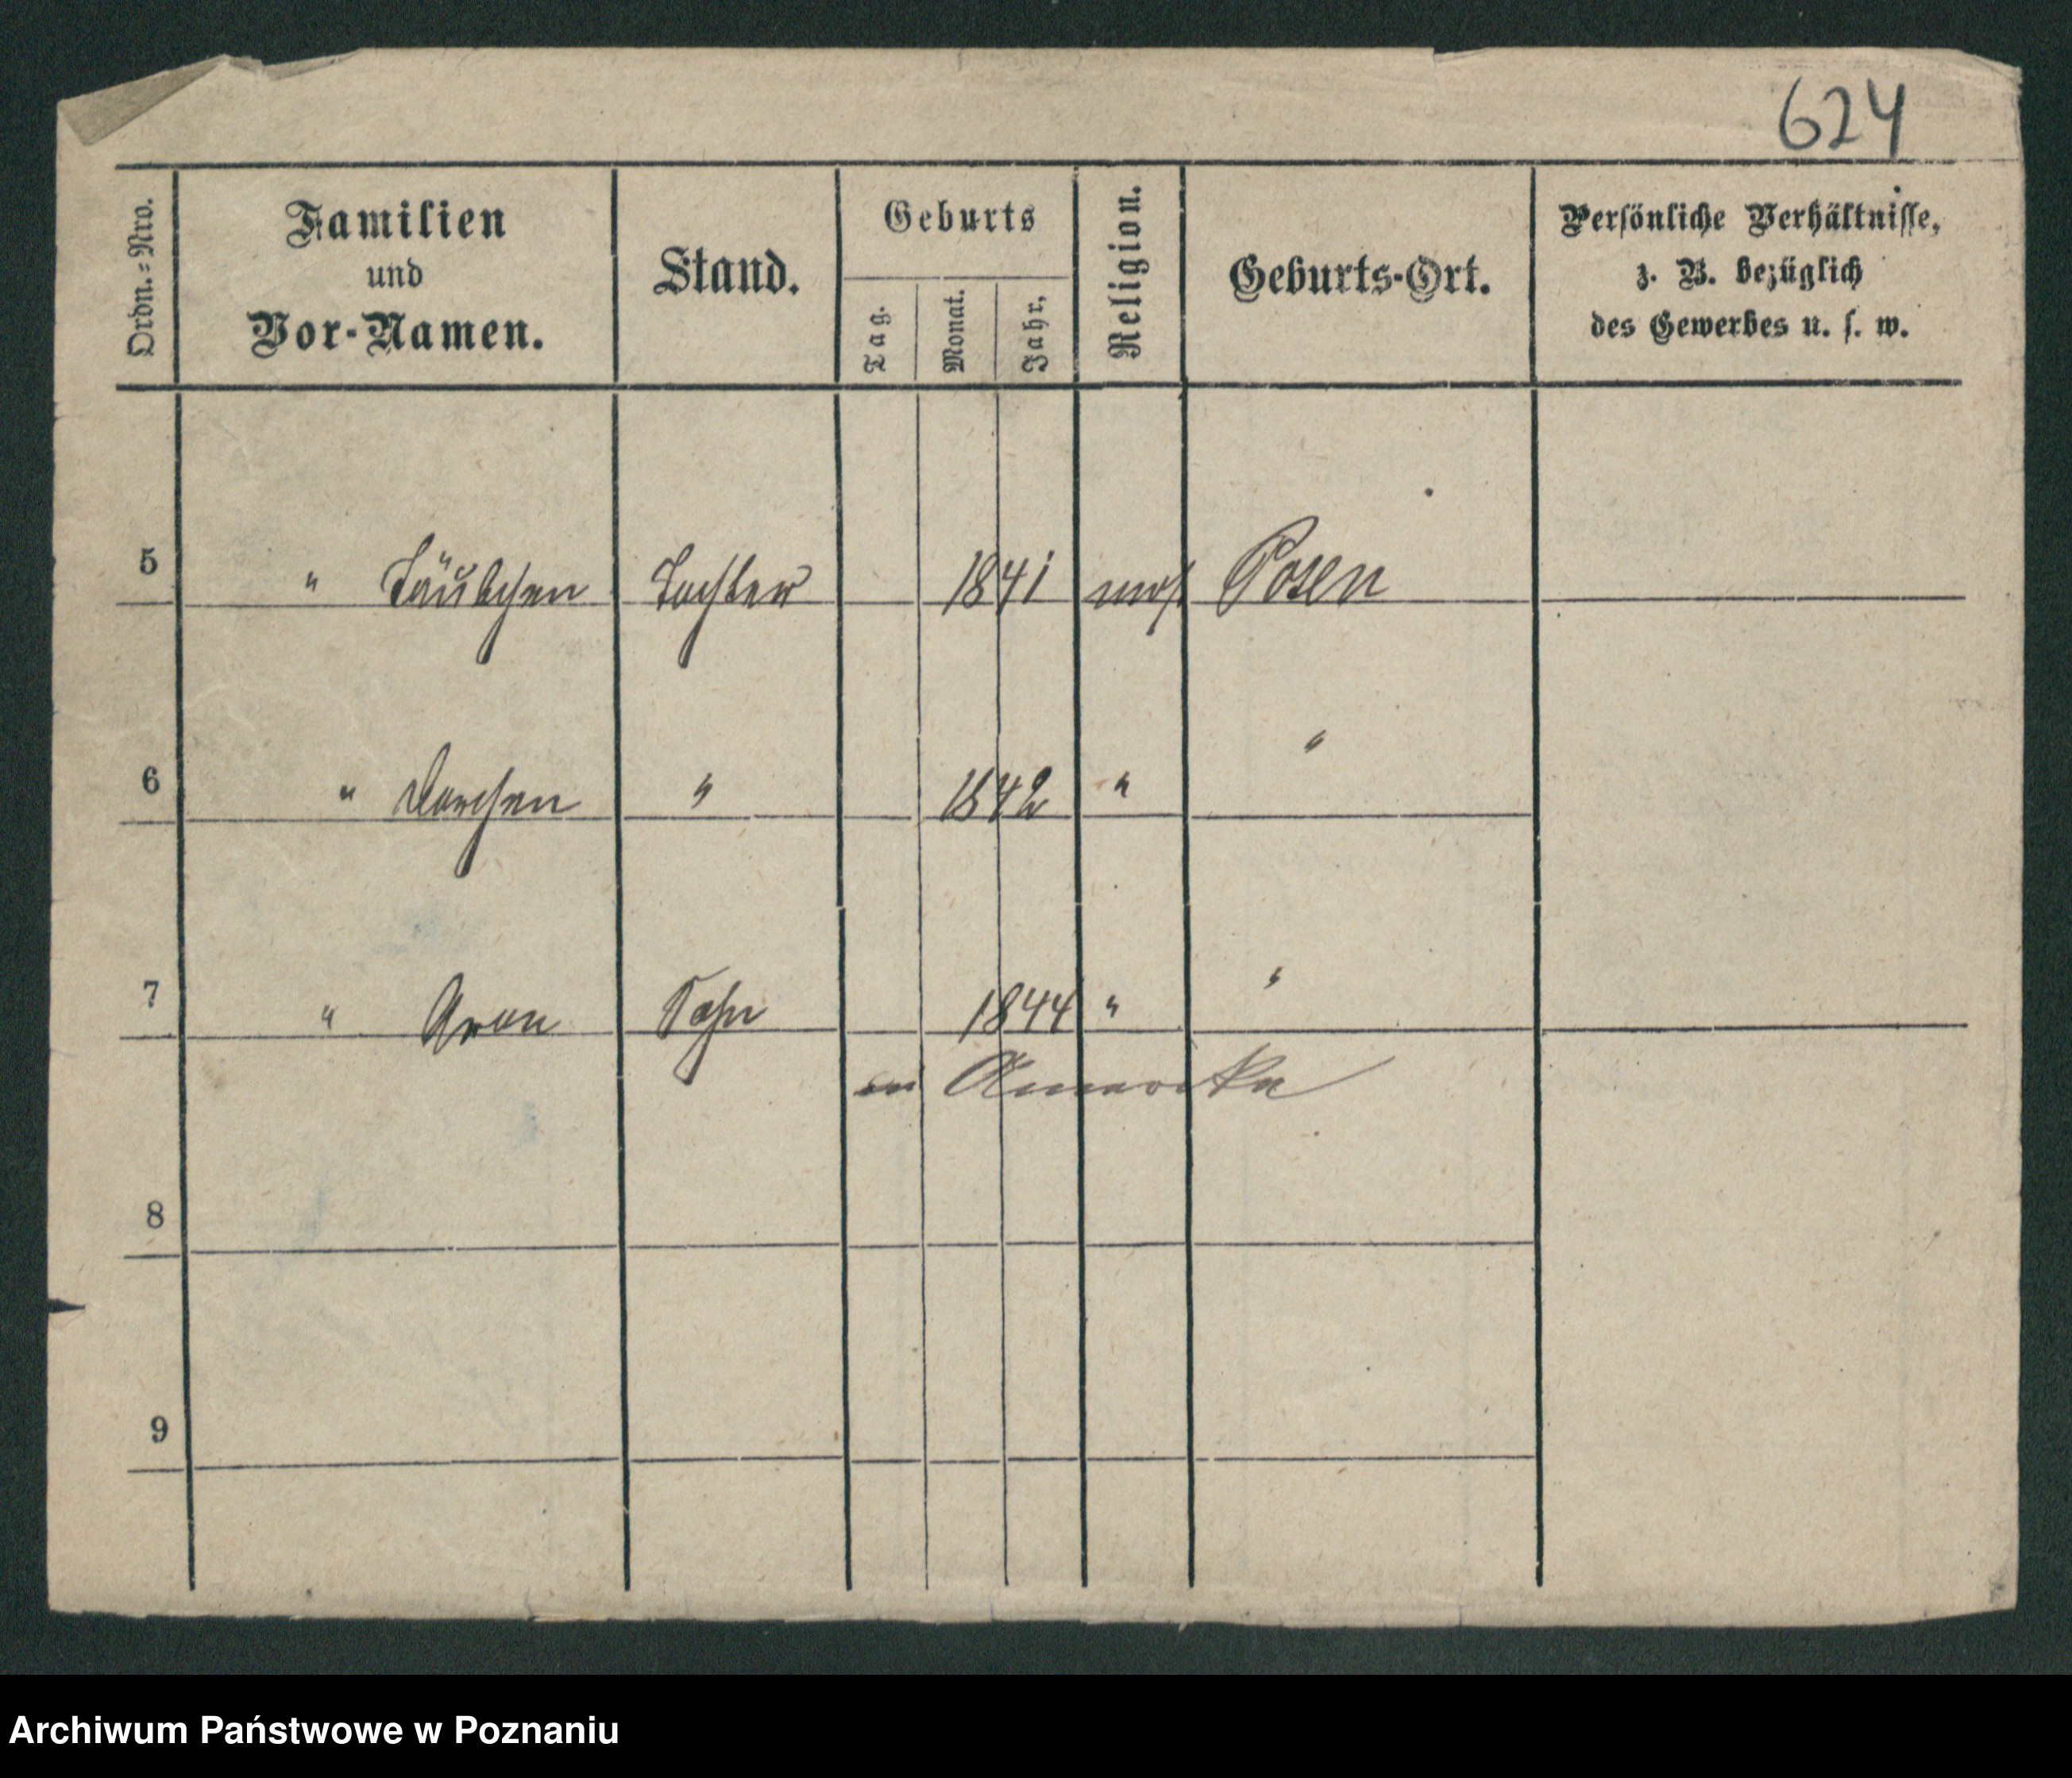 624
Ordn.=Nro.
Familien
und
Vor-Namen.
Stand.
Geburts
Tag.
Monat.
Jahr.
Religion.
Geburts-Ort.
Persönliche Verhältnisse,
z. B. bezüglich
des Gewerbes u. s. w.
5 " Täubchen Tochter 1841 mos Posen
6 " Dorchen " 1842 " "
7 " Aron Sohn 1844 " "
in Amerika
8
9
Archiwum Państwowe w Poznaniu